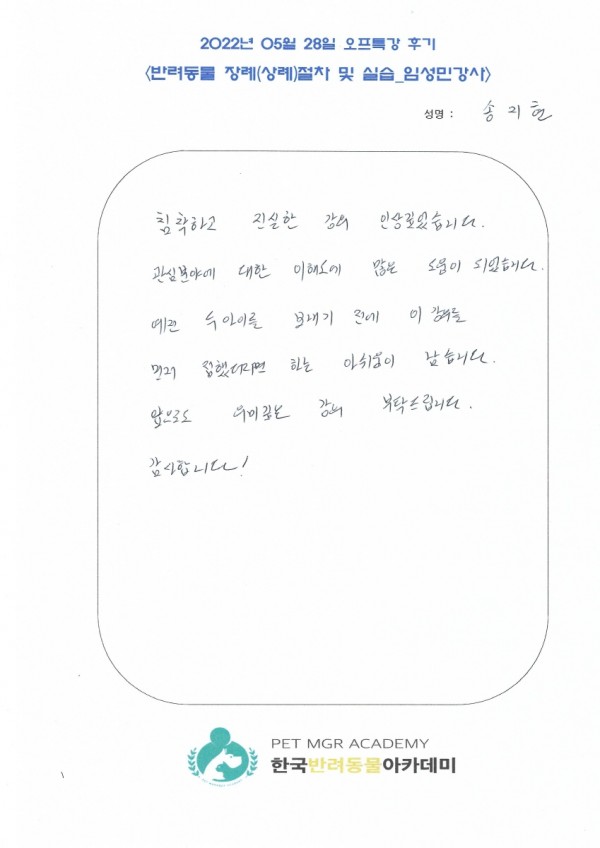 2022년 05월 28일 오프특강 후기
<반려동물 장례(상례)절차 및 실습_임성민강사>
성명 : 송지현
침착하고 진실한 강의 인상깊었습니다.
관심분야에 대한 이해도에 많은 도움이 되었습니다.
예전 두 아이를 보내기 전에 이 강의를
먼저 접했더라면 하는 아쉬움이 남습니다.
앞으로도 의미깊은 강의 부탁드립니다.
감사합니다!
PET MGR ACADEMY
한국반려동물아카데미